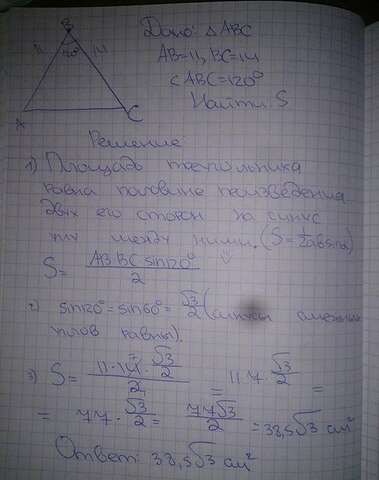 B
Дано: △ABC
11
120°
14
AB=11, BC=14
∠ABC=120°
Найти: S
A
C
Решение:
1) Площадь треугольника
равна половине произведения
двух его сторон на синус
угла между ними. (S=½absinα)
S= AB·BC sin120° / 2
2) sin120°=sin60°= √3/2 (синусы смежных
углов равны).
3) S= 11·14·√3/2 / 2 = 11·7·√3/2 =
= 77·√3/2 = 77√3/2 =38,5√3 см²
Ответ: 38,5√3 см²